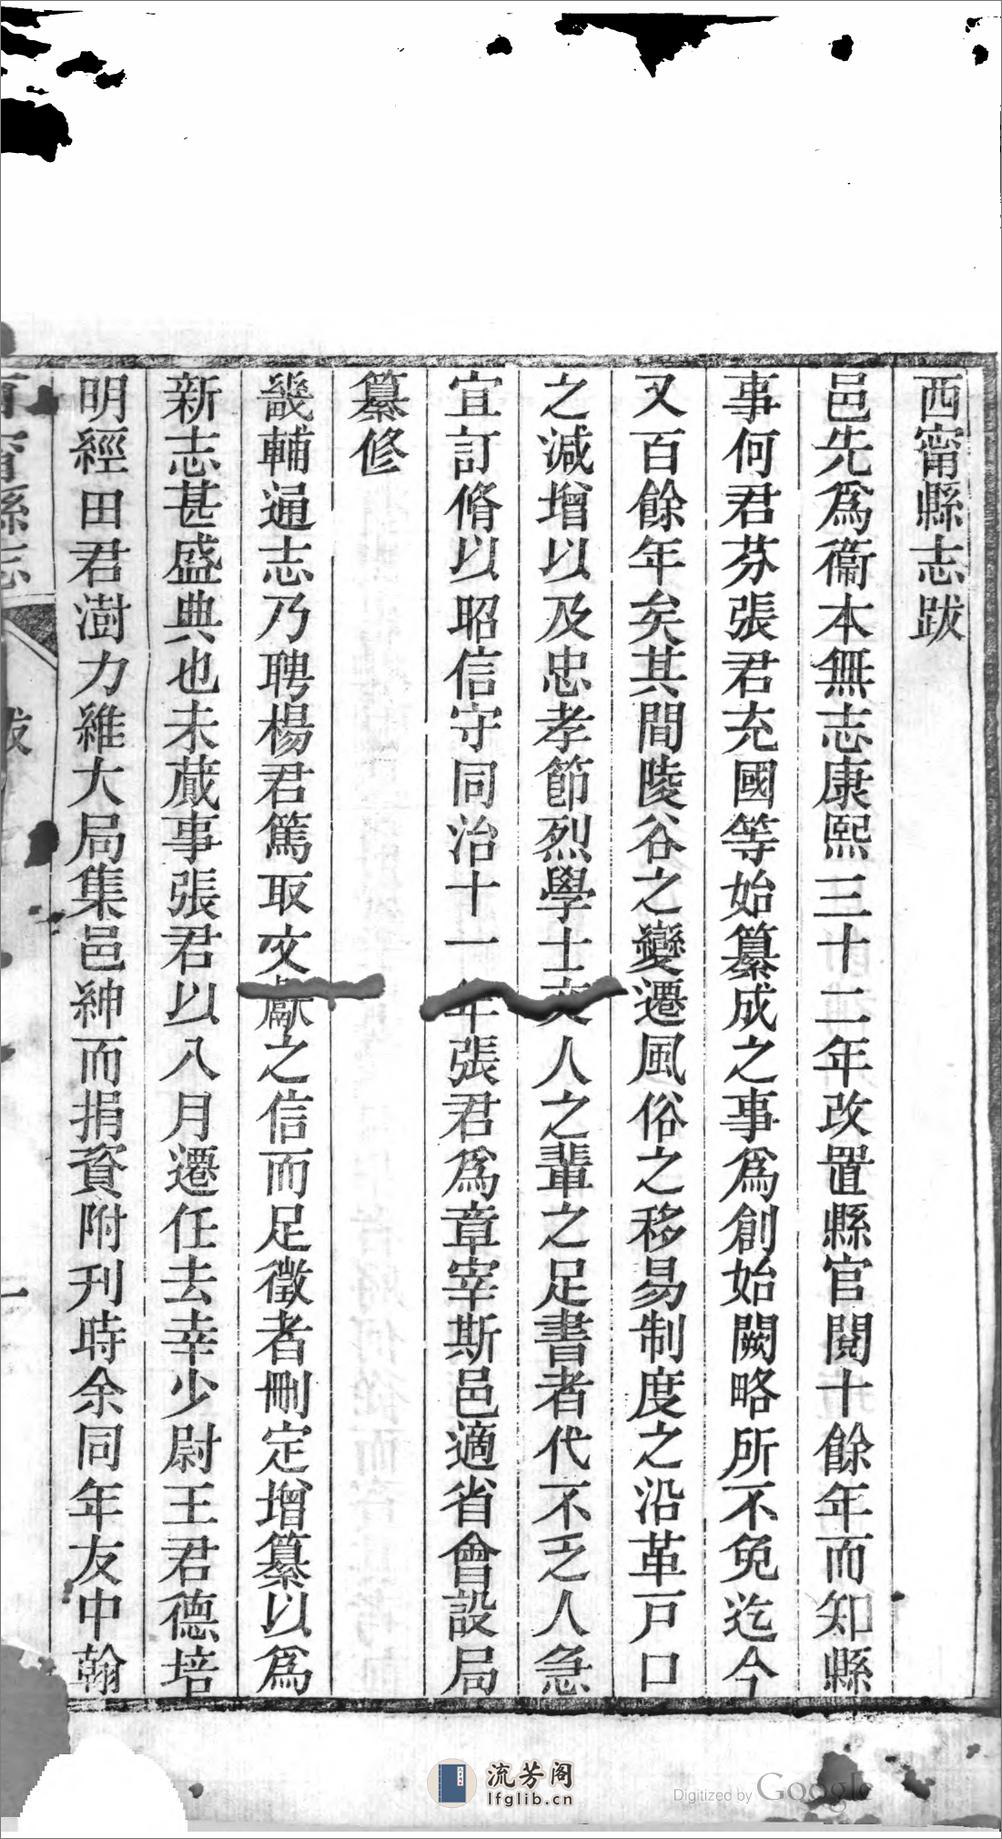 西甯縣志跋
邑先爲衞本無志康熙三十二年改置縣官閱十餘年而知縣
事何君芬張君充國等始纂成之事爲創始闕略所不免迄今
又百餘年矣其間陵谷之變遷風俗之移易制度之沿革戸口
之減增以及忠孝節烈學士文人之輩之足書者代不乏人急
宜訂脩以昭信守同治十一年張君爲章宰斯邑適省會設局
纂修
畿輔通志乃聘楊君篤取文獻之信而足徵者刪定增纂以爲
新志甚盛典也未蕆事張君以八月遷任去幸少尉王君德培
明經田君澍力維大局集邑紳而捐資附刊時余同年友中翰
西甯縣志
跋
一
流芳阁
lfglib.cn
Digitized by Google